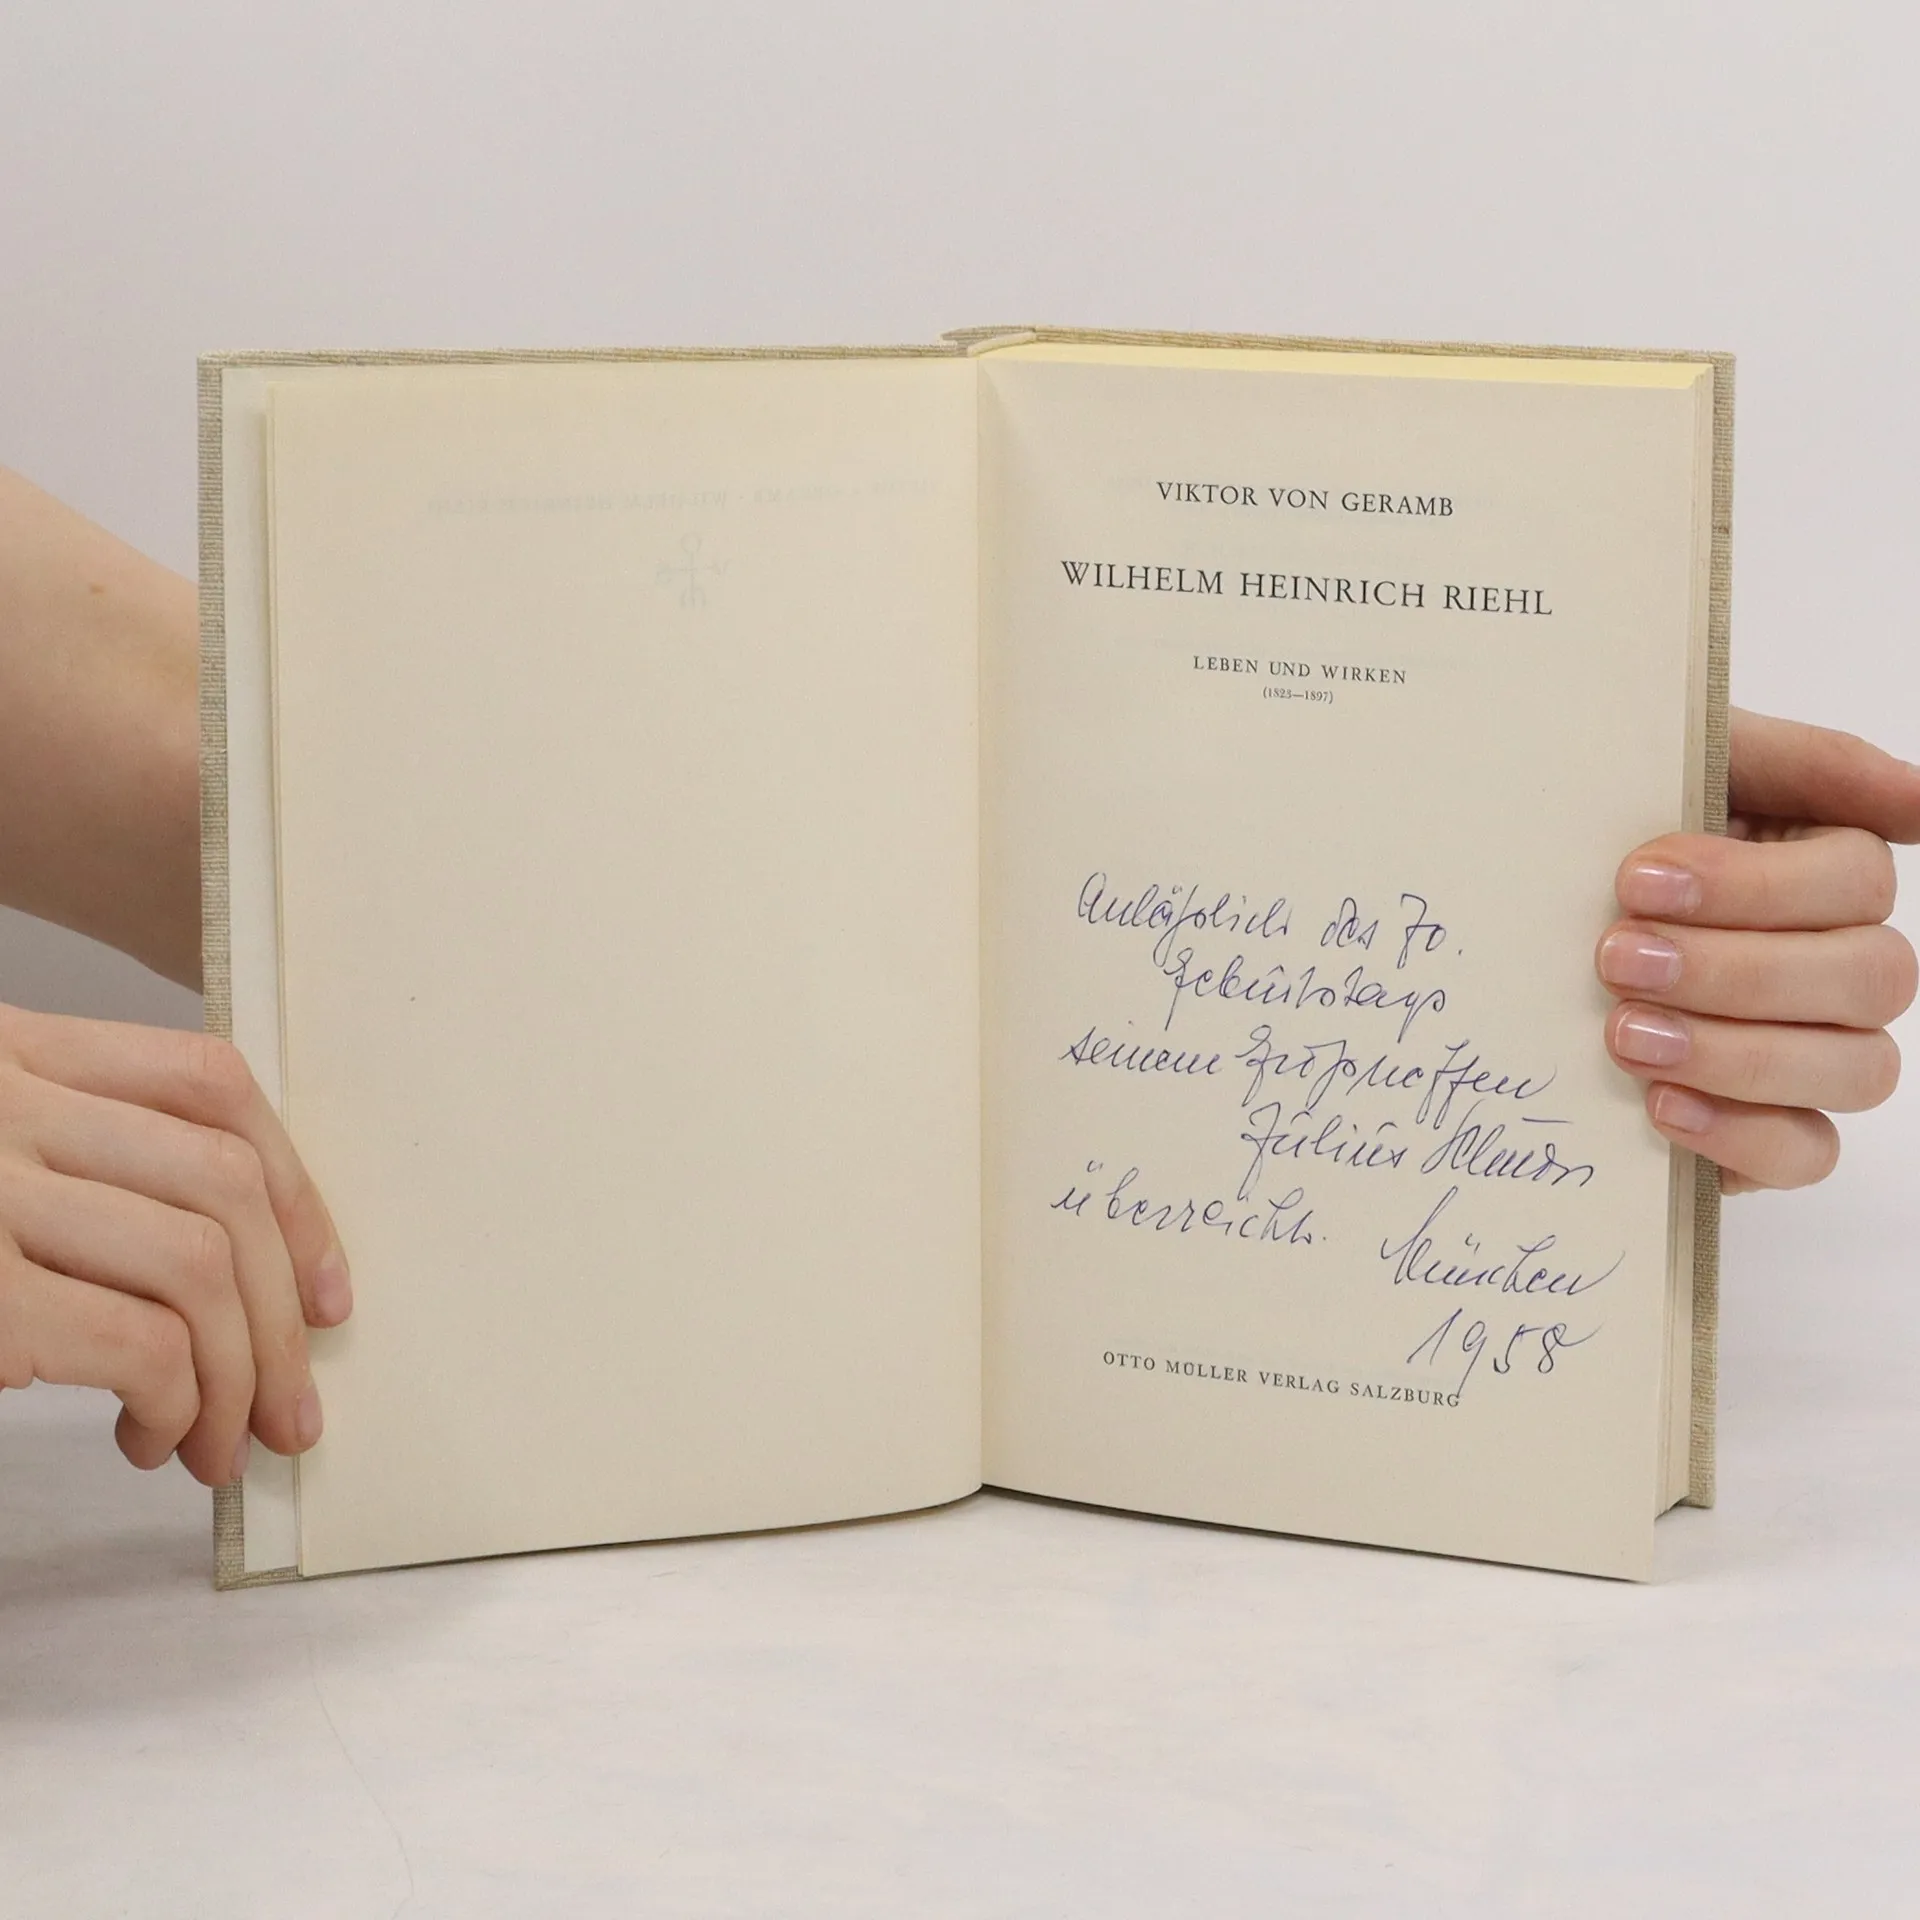 VIKTOR VON GERAMB
WILHELM HEINRICH RIEHL
LEBEN UND WIRKEN
(1823—1897)
Anläßlich des 70.
Geburtstags
seinem Großneffen
Julius
überreicht. München
1958
OTTO MÜLLER VERLAG SALZBURG